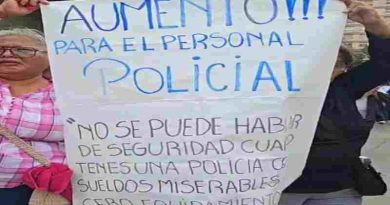 AUMENTO!!!
PARA EL PERSONAL
POLICIAL
"NO SE PUEDE HABL R
DE SEGURIDAD CUA
TENES UNA POLICIA C
SUELDOS MISERABLES
CERO EQUIPAMIENTO